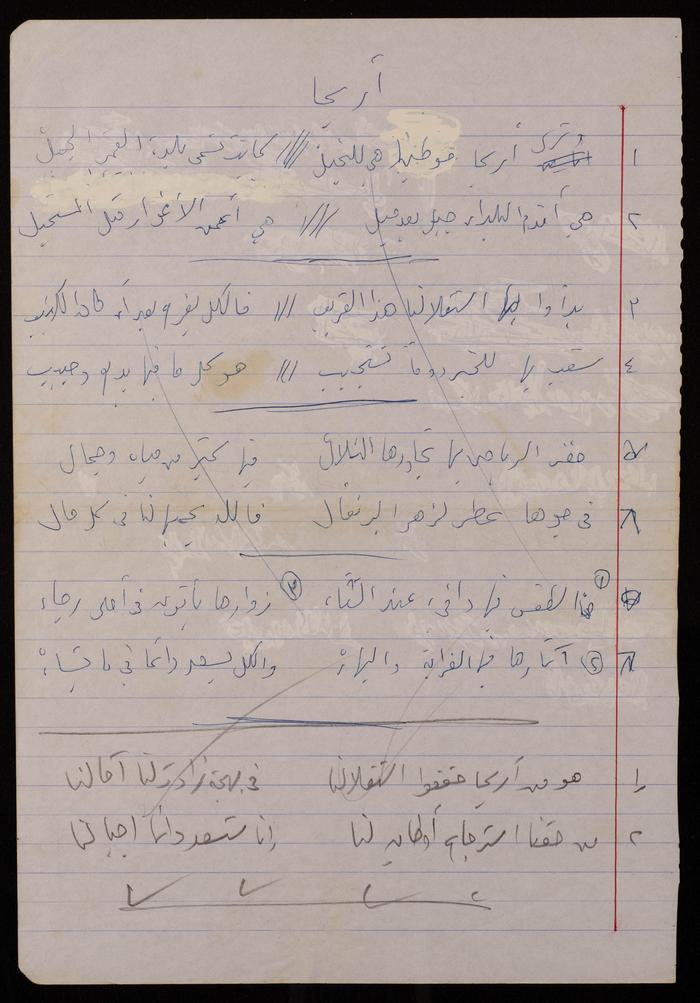 أريحا
١ وترى أريحا موطنها هي للنخيل /// كانت تسمى بلدة القمر الجميل
٢ هي أقدم البلدان جيل بعد جيل /// هي أعمق الأغوار قبل المستحيل
٣ بدأوا بها استقلالنا هذا القريب /// فالكل يفرح بعد أن كان الكئيب
٤ شعب بها للخير دوماً تستجيب /// هو كل ما فيها بديع وحبيب
٥ خضر الرياض بها تجاورها التلال فيها كثير من مياه وجمال
٦ في جوها عطر لزهر البرتقال فالله يحميها لنا في كل حال
١ هذا الطقس فيها دافئ عند الشتاء ٣ زوارها يأتون في أحلى رجاء
٨ ٢ آثارها فيها الغرابة والبهاء والكل يسعد دائما في ما يشاء
١ هو من أريحا حققوا استقلالنا في بهجة زادت لنا آمالنا
٢ من حقنا استرجاع أوطان لنا إنا سنسعد دائما أجيالنا